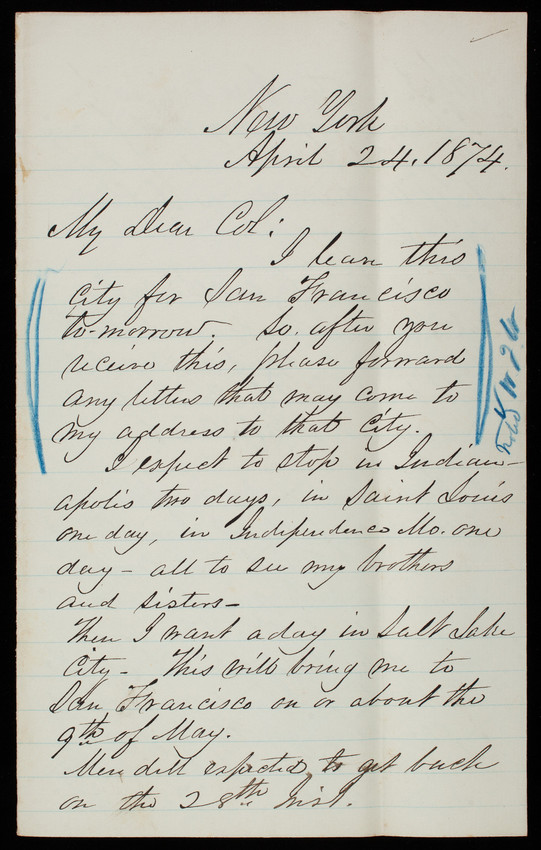 New York
April 24, 1874.
My Dear Col:
I leave this
City for San Francisco
to-morrow. So, after you
receive this, please forward
any letters that may come to
my address to that City.
I expect to stop in Indian-
apolis two days, in Saint Louis
one day, in Independence Mo. one
day - all to see my brothers
and sisters -
Then I want a day in Salt Lake
City - This will bring me to
San Francisco on or about the
9th of May.
Mendell expected to get back
on the 28th inst.